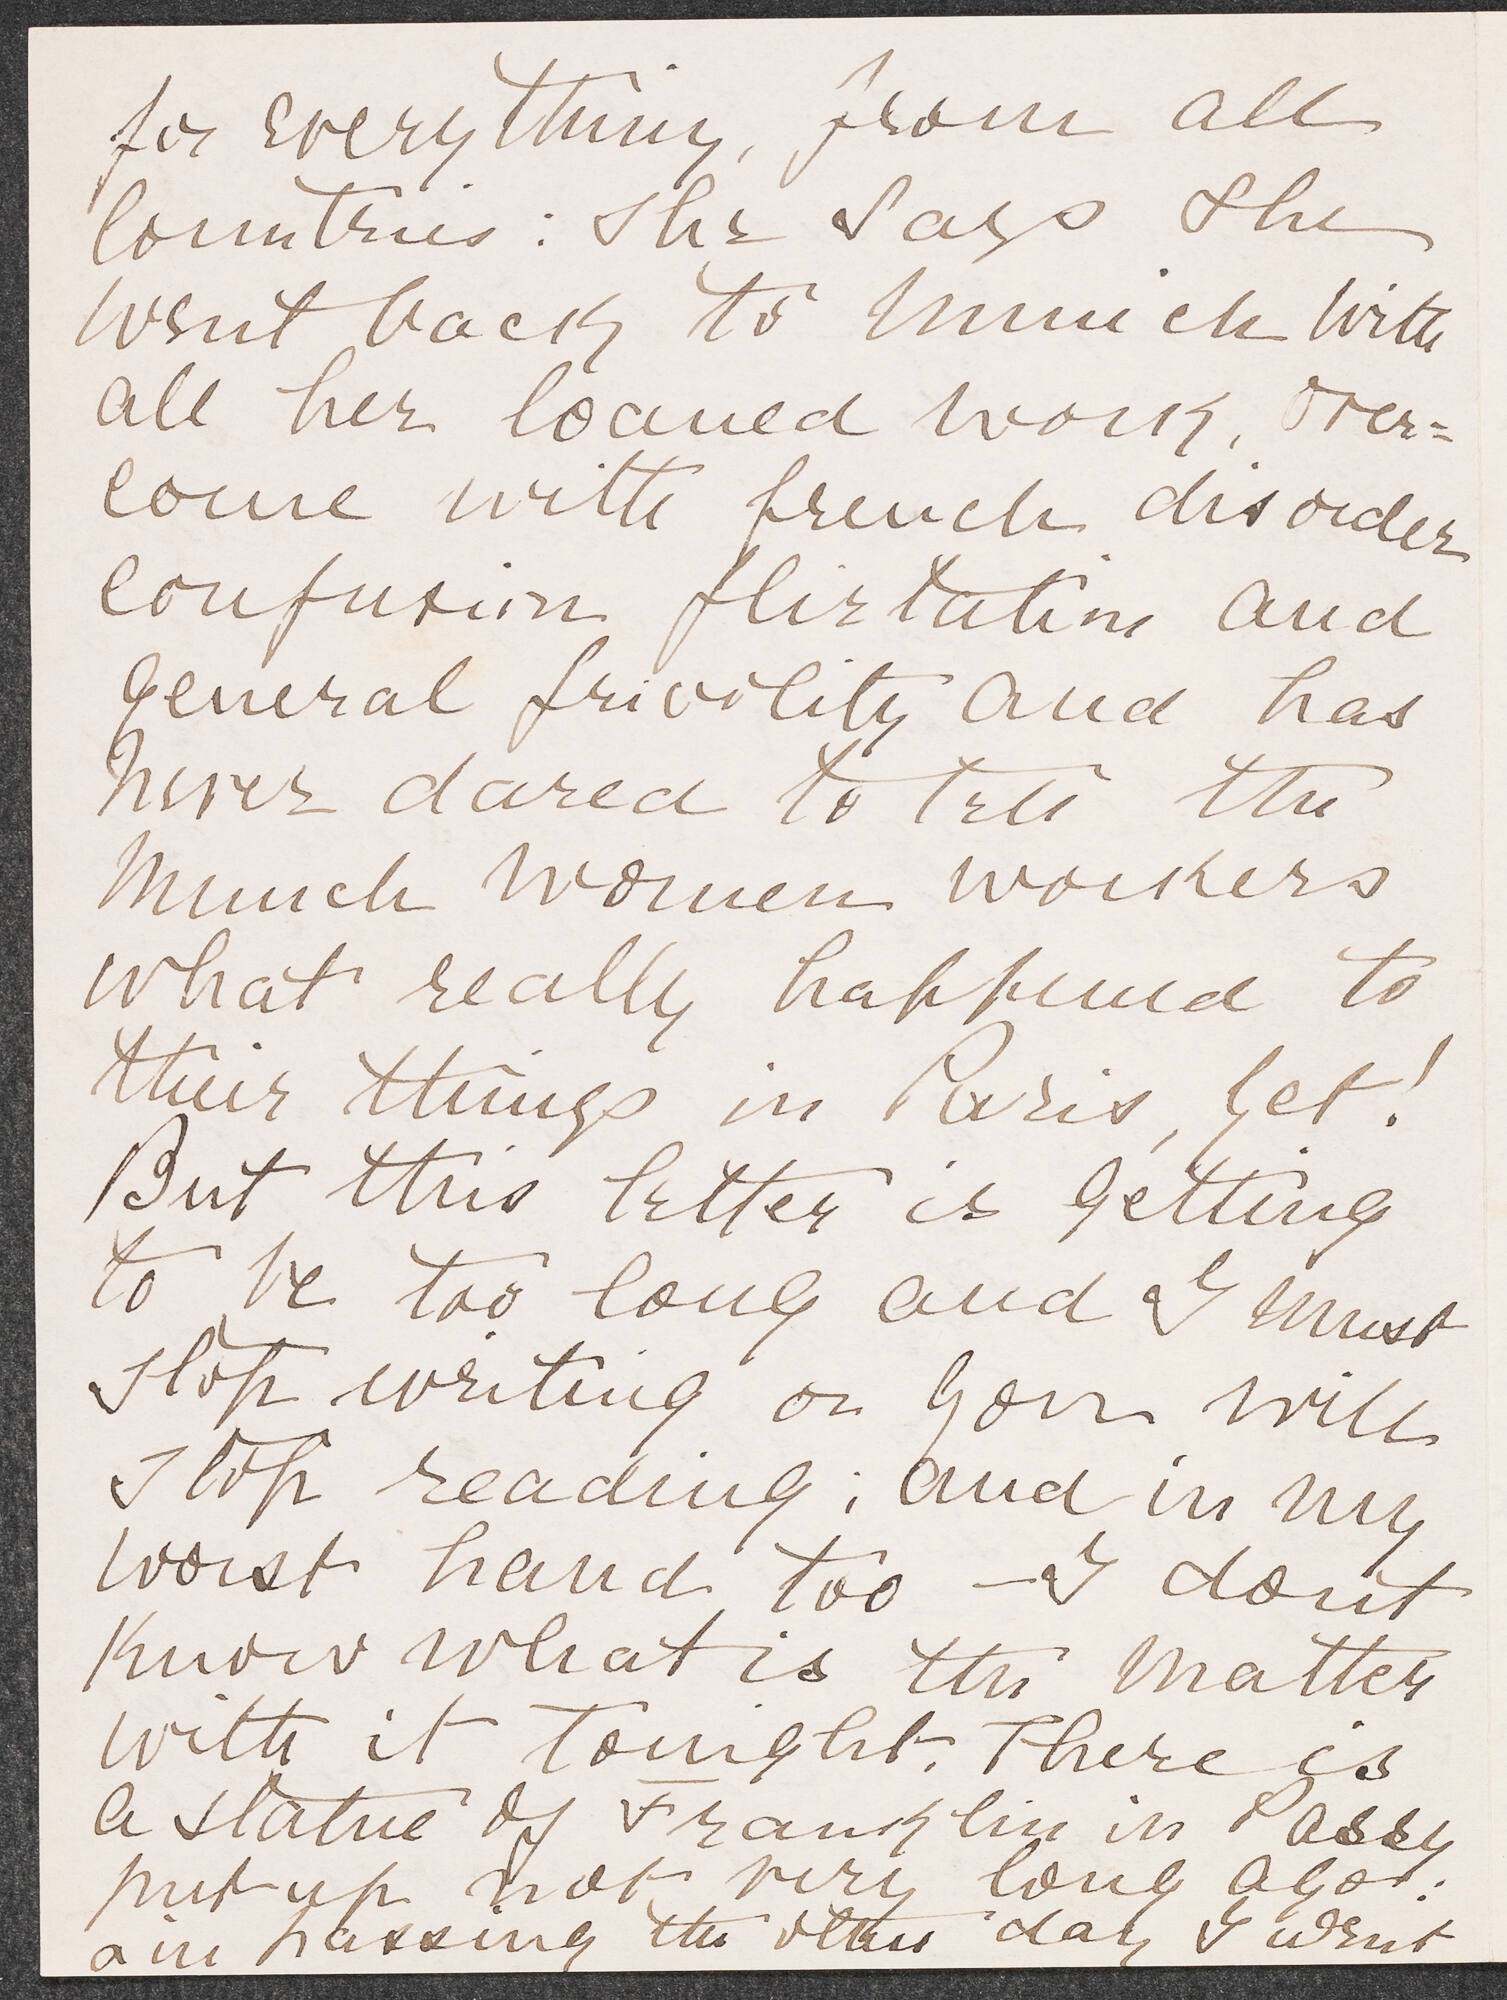 for everything, from all
Countries: She says She
went back to Munich with
all her loaned work, over=
come with french disorder
confusion flirtation and
general frivolity and has
never dared to tell the
Munich women workers
what really happened to
their things in Paris, yet!
But this letter is getting
to be too long and I must
stop writing or you will
stop reading; and in my
worst hand too — I dont
know what is the matter
with it tonight. There is
a statue of Franklin in Passy
put up not very long ago:
in passing the other day I went